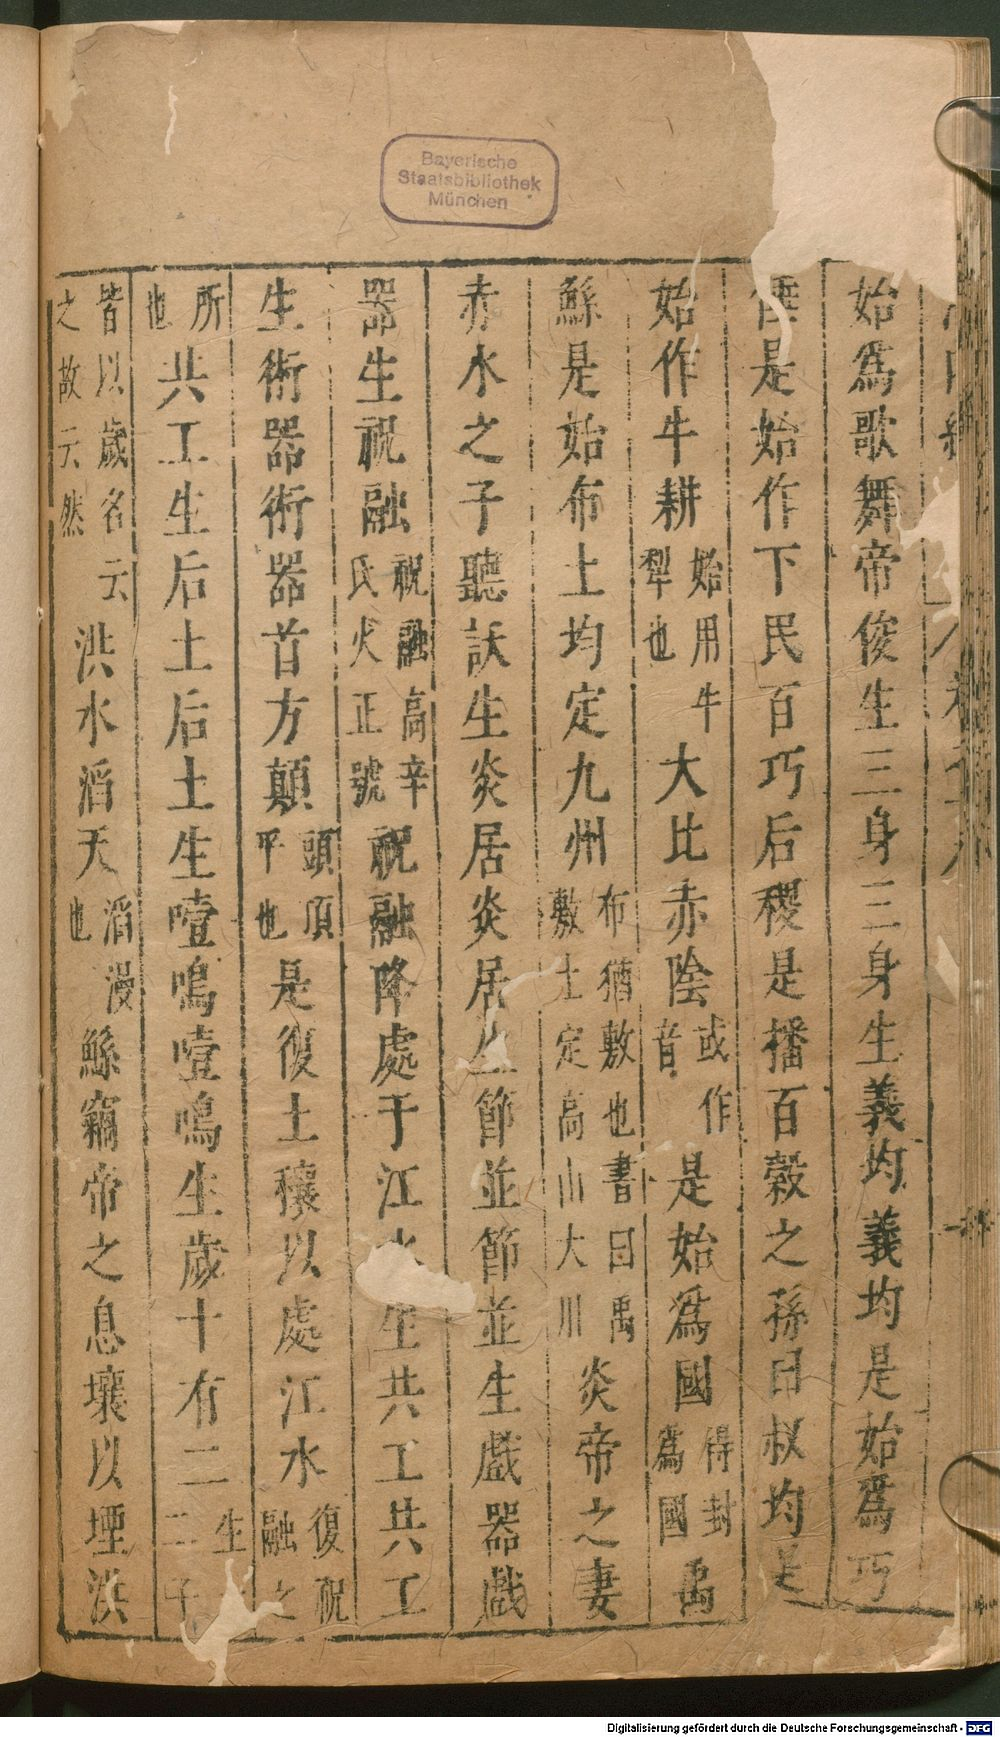 Bayerische
Staatsbibliothek
München
始爲歌舞帝俊生三身三身生義均義均是始爲巧
倕是始作下民百巧后稷是播百穀之孫曰叔均是
始作牛耕始用牛犁也大比赤陰或作音是始爲國得封爲國禹
鯀是始布土均定九州布猶敷也書曰禹敷土定高山大川炎帝之妻
赤水之子聽訞生炎居炎居生節並節並生戲器戲
器生祝融祝融高辛氏火正號祝融降處于江水生共工共工
生術器術器首方顛頭頂平也是復土穰以處江水復祝融之
所也共工生后土后土生噎鳴噎鳴生歲十有二生十二子
皆以歲名云之故云然洪水滔天滔漫也鯀竊帝之息壤以堙洪
Digitalisierung gefördert durch die Deutsche Forschungsgemeinschaft - DFG